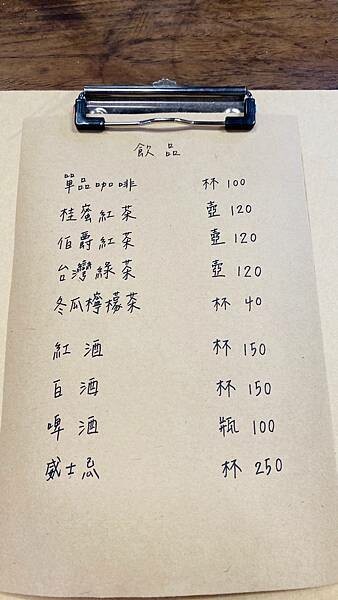 飲品
單品咖啡 杯 100
桂蜜紅茶 壺 120
伯爵紅茶 壺 120
台灣綠茶 壺 120
冬瓜檸檬茶 杯 40
紅酒 杯 150
白酒 杯 150
啤酒 瓶 100
威士忌 杯 250